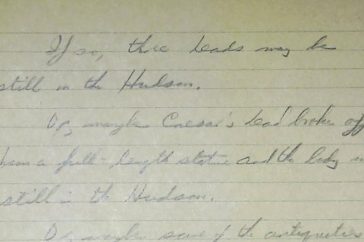 If so, the heads may be
still in the Hudson.
Or, maybe Caesar's head broke off
from a full-length statue and the body is
still in the Hudson.
Or maybe some of the antiquities